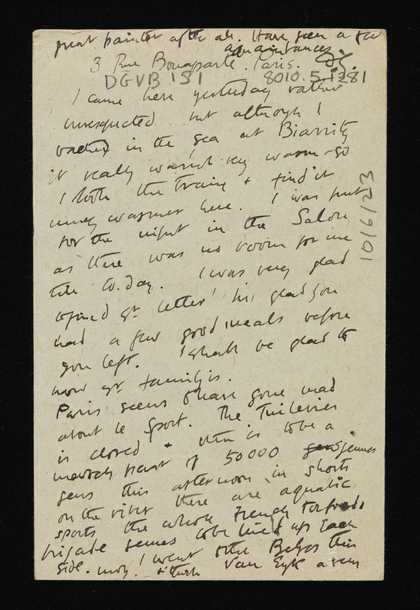 great painter after all. Have seen a few
acquaintances
3 Rue Bonaparte. Paris.
DGVB 151 8010.5.1281
I came here yesterday rather
unexpected but although I
bathed in the sea at Biarritz
it really wasn't very warm so
I took the train & find it
much warmer here. I was put
for the night in the Salon
as there was no room for me
till to.day. I was very glad
to find yr letter! I'm glad you
had a few good meals before
you left. I shall be glad to
know yr family is.
Paris seems to have gone mad
about le Sport. The Tuileries
is closed & there is to be a
march past of 50000 jeunes
gens this afternoon in shorts
on the river there are aquatic
sports the whole French
brigade seems to be lined up each
side. I went to the Belges this
& think Van Eyck a very
10/6/23